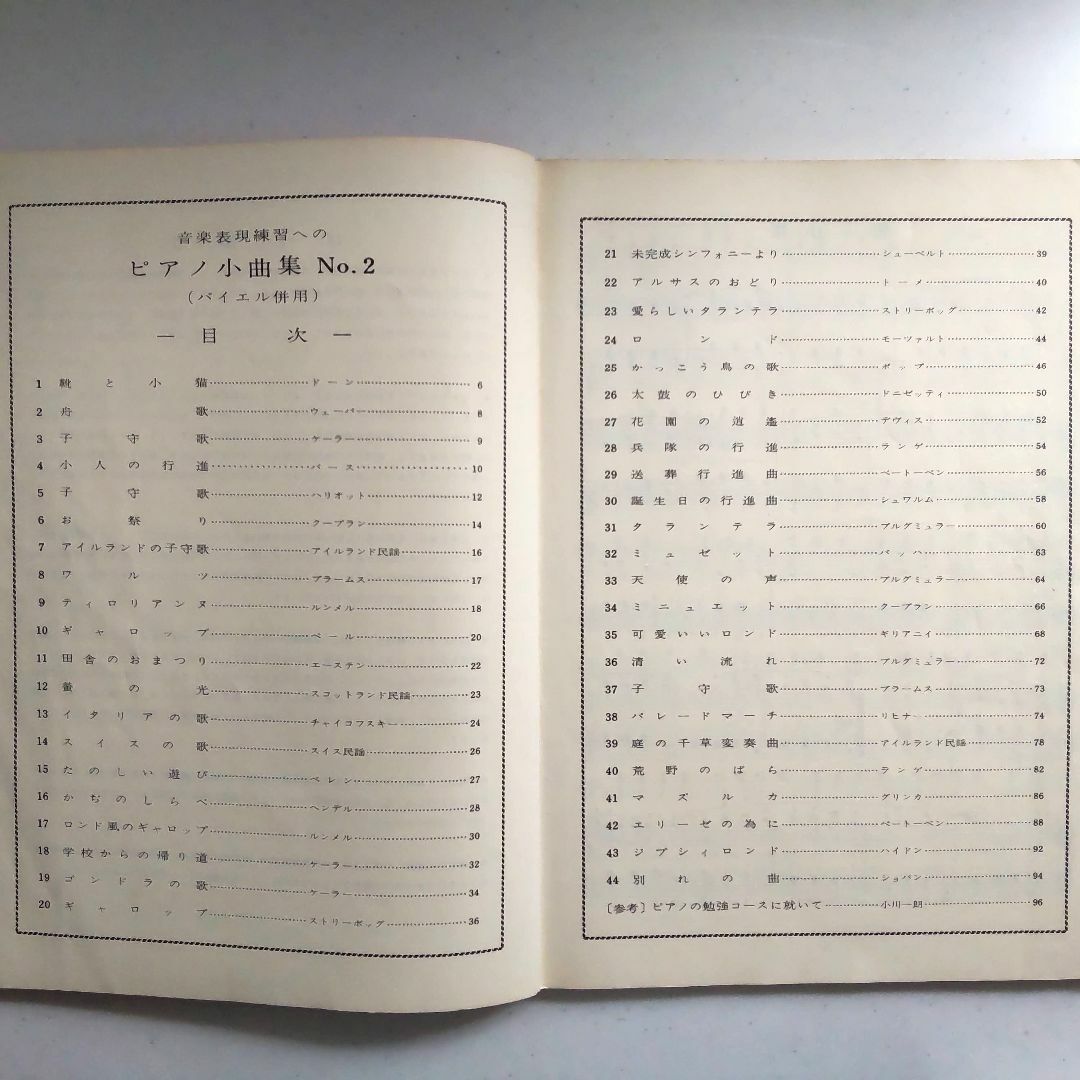 音楽表現練習への
ピアノ小曲集 No.2
(バイエル併用)
― 目 次 ―
1 靴と小猫 ドーン 6
2 舟歌 ウェーバー 8
3 子守歌 ケーラー 9
4 小人の行進 バース 10
5 子守歌 ハリオット 12
6 お祭り クープラン 14
7 アイルランドの子守歌 アイルランド民謡 16
8 ワルツ ブラームス 17
9 ティロリアンヌ ルンメル 18
10 ギャロップ ベール 20
11 田舎のおまつり エーステン 22
12 螢の光 スコットランド民謡 23
13 イタリアの歌 チャイコフスキー 24
14 スイスの歌 スイス民謡 26
15 たのしい遊び ベレン 27
16 かぢのしらべ ヘンデル 28
17 ロンド風のギャロップ ルンメル 30
18 学校からの帰り道 ケーラー 32
19 ゴンドラの歌 ケーラー 34
20 ギャロップ ストリーボッグ 36
21 未完成シンフォニーより シューベルト 39
22 アルサスのおどり トーメ 40
23 愛らしいタランテラ ストリーボッグ 42
24 ロンド モーツァルト 44
25 かっこう鳥の歌 ポップ 46
26 太鼓のひびき ドニゼッティ 50
27 花園の逍遙 デヴィス 52
28 兵隊の行進 ランゲ 54
29 送葬行進曲 ベートーベン 56
30 誕生日の行進曲 シュワルム 58
31 タランテラ ブルグミュラー 60
32 ミュゼット バッハ 63
33 天使の声 ブルグミュラー 64
34 ミニュエット クープラン 66
35 可愛いいロンド ギリアニイ 68
36 清い流れ ブルグミュラー 72
37 子守歌 ブラームス 73
38 パレードマーチ リヒナー 74
39 庭の千草変奏曲 アイルランド民謡 78
40 荒野のばら ランゲ 82
41 マズルカ グリンカ 86
42 エリーゼの為に ベートーベン 88
43 ジプシィロンド ハイドン 92
44 別れの曲 ショパン 94
〔参考〕ピアノの勉強コースに就いて 小川一朗 96